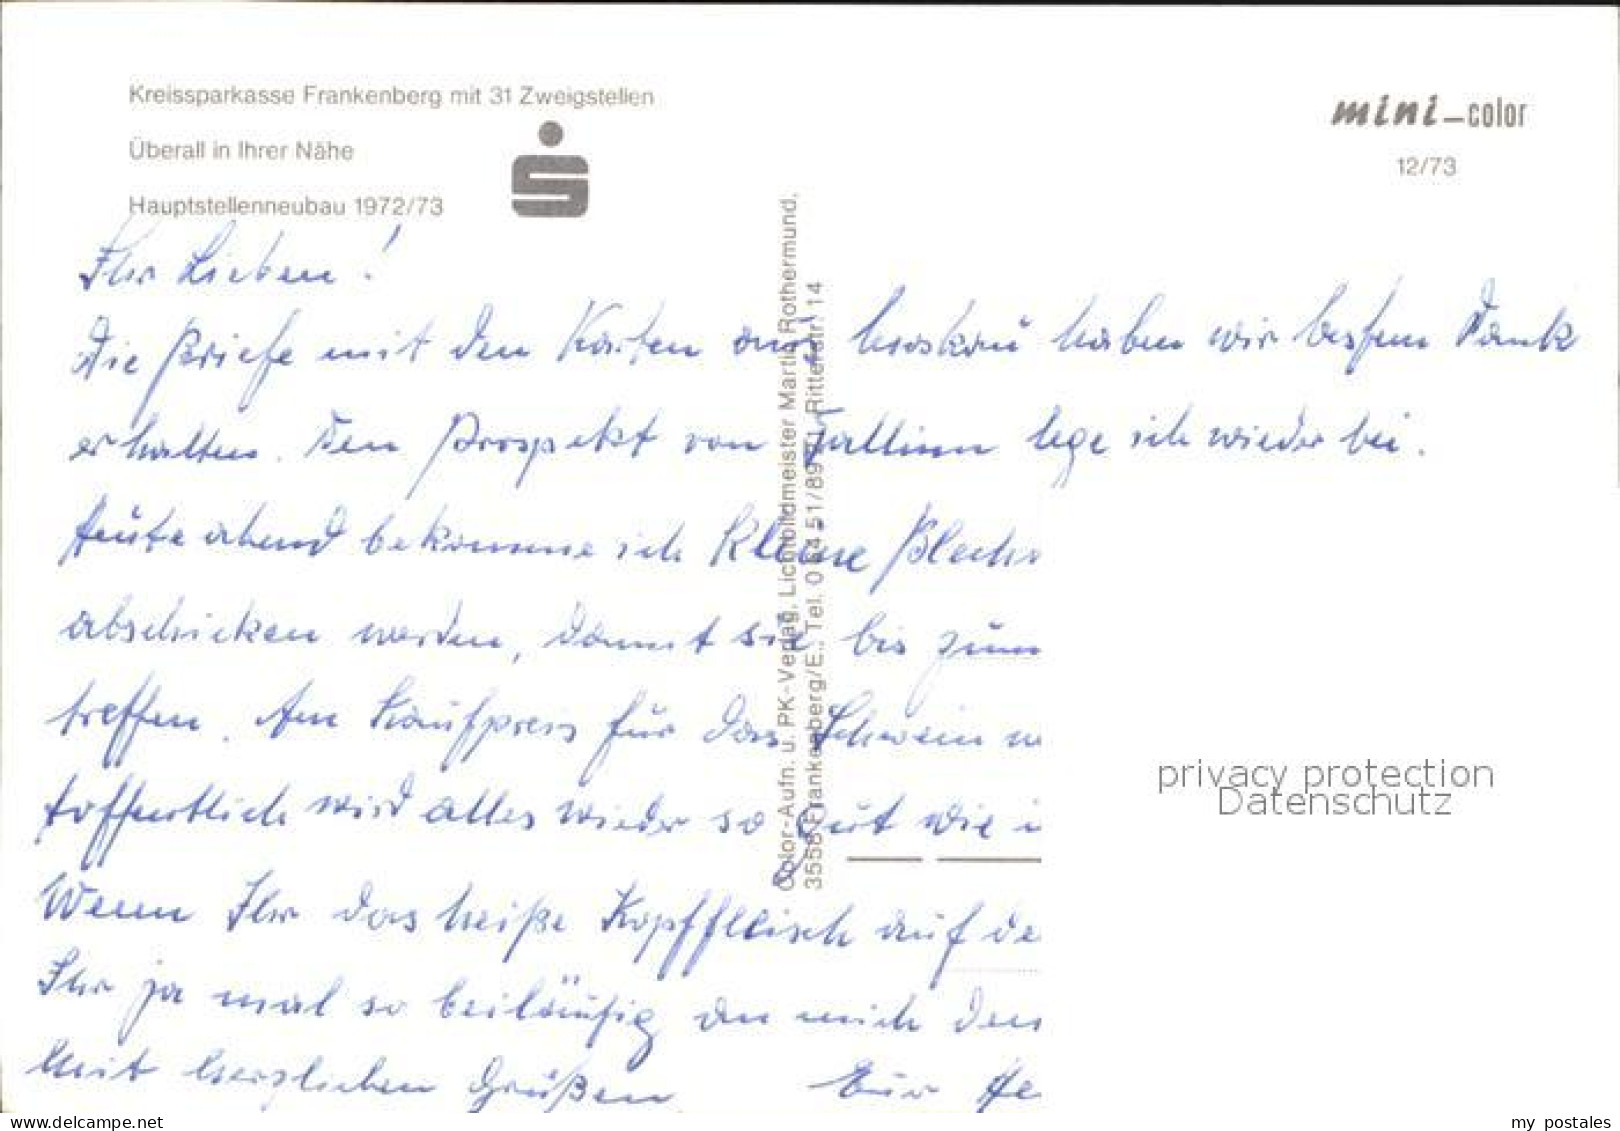 Kreissparkasse Frankenberg mit 31 Zweigstellen
Überall in Ihrer Nähe
Hauptstellenneubau 1972/73
mini-color
12/73
Color-Aufn. u. PK-Verlag, Lichtbildmeister Martin Rothermund,
3558 Frankenberg/E., Tel. Ritterstr. 14
Ihr Lieben!
Die Briefe mit den Karten aus Moskau haben wir bestem Dank
erhalten. Den Prospekt von Tallinn lege ich wieder bei.
Heute abend bekomme ich kleine
abschicken werden, damit sie bis zum
treffen. Am Kaufpreis für das Schwein
Hoffentlich wird alles wieder so gut wie
Wenn Ihr das heiße Kopffleisch auf
Ihr ja mal so beiläufig an mich
Mit herzlichen Grüßen Eur
privacy protection
Datenschutz
www.delcampe.net
my_postales